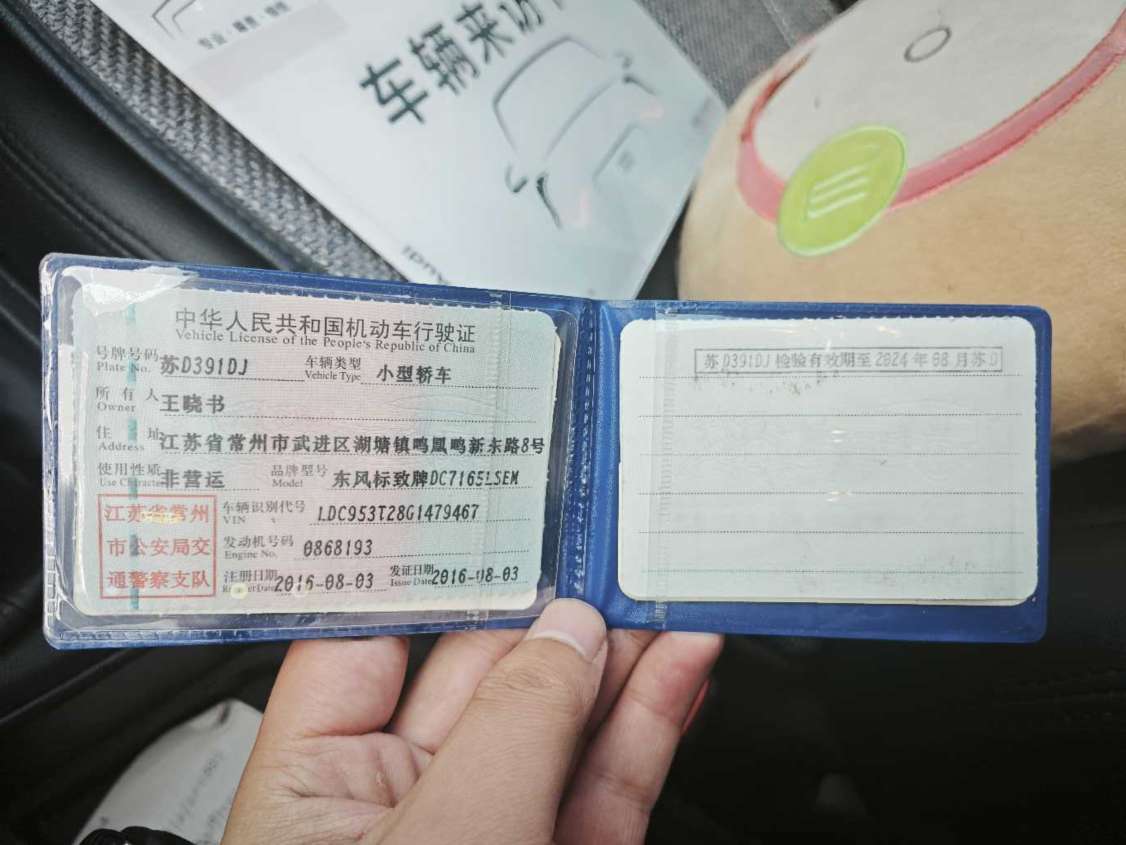 专业·尊贵·愉悦
车辆来访
中华人民共和国机动车行驶证
Vehicle License of the People's Republic of China
号牌号码 苏D391DJ 车辆类型 小型轿车
Plate No. Vehicle Type
所有人 王晓书
Owner
住址 江苏省常州市武进区湖塘镇鸣凰鸣新东路8号
Address
使用性质 非营运 品牌型号 东风标致牌DC7165LSEM
Use Character Model
江苏省常州
市公安局交
通警察支队
车辆识别代号 LDC953T28G1479467
VIN
发动机号码 0868193
Engine No.
注册日期 2016-08-03 发证日期 2016-08-03
Register Date Issue Date
苏D391DJ 检验有效期至2024年08月苏D